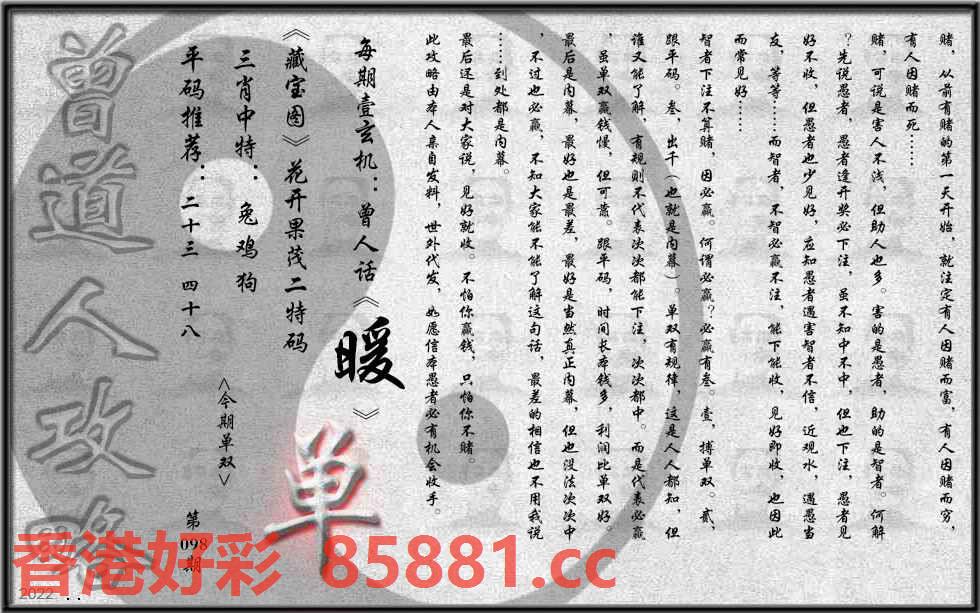 赌，从前有赌的第一天开始，就注定有人因赌而富，有人因赌而穷，
有人因赌而死……
赌，可说是害人不浅，但助人也多。害的是愚者，助的是智者。何解
？先说愚者，愚者逢开奖必下注，虽不知中不中，但也下注，愚者见
好不收，但愚者也少见好，应知愚者遇害智者不信，近观水，遇愚当
友，等等……而智者，不智必赢不注，能下能收，见好即收，也因此
而常见好……
智者下注不算赌，因必赢。何谓必赢？必赢有叁。壹，搏单双。贰，
跟平码。叁，出千（也就是内幕）。单双有规律，这是人人都知，但
谁又能了解，有规则不代表次次都能下注，次次都中。而是代表必赢
，虽单双赢钱慢，但可靠。跟平码，时间长本钱多，利润比单双好。
最后是内幕，最好也是最差，最好是当然真正内幕，但也没法次次中
，不过也必赢，不知大家能不能了解这句话，最差的相信也不用我说
……到处都是内幕。
最后还是对大家说，见好就收。不怕你赢钱，只怕你不赌。
此攻略由本人亲自发料，世外代发，如愿信本愚者必有机会收手。
每期壹玄机：曾人话《暖》
《藏宝图》花开果茂二特码
三肖中特：兔鸡狗
平码推荐：二十三 四十八
<今期单双>
单
第098期
曾道人攻略
香港好彩 85881.cc
2022